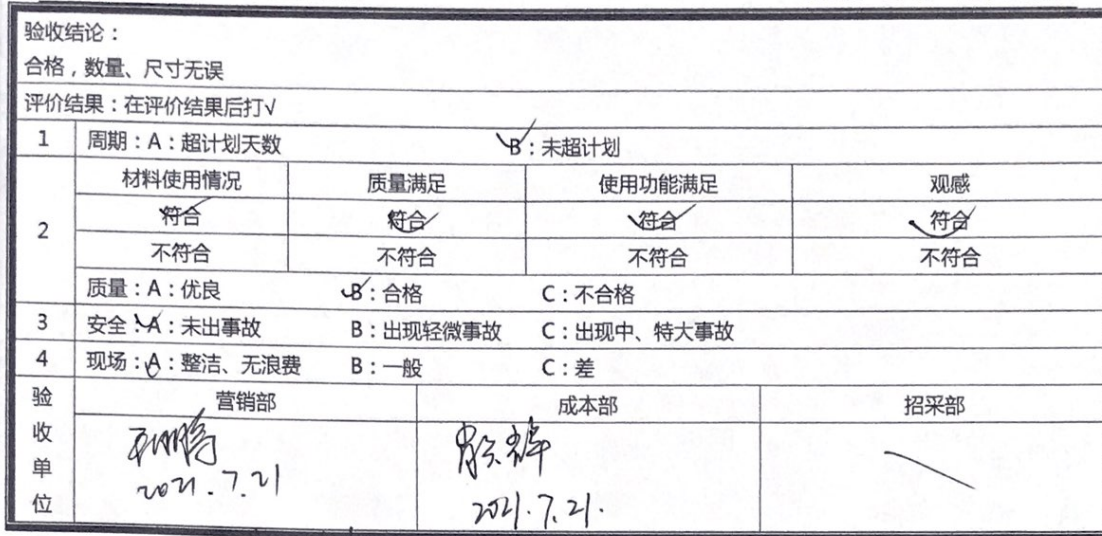 验收结论：
合格，数量、尺寸无误
评价结果：在评价结果后打√
1 周期：A：超计划天数 B：未超计划
材料使用情况 质量满足 使用功能满足 观感
符合 符合 符合 符合
2
不符合 不符合 不符合 不符合
质量：A：优良 B：合格 C：不合格
3 安全：A：未出事故 B：出现轻微事故 C：出现中、特大事故
4 现场：A：整洁、无浪费 B：一般 C：差
验收单位 营销部 成本部 招采部
2021.7.21
2021.7.21.